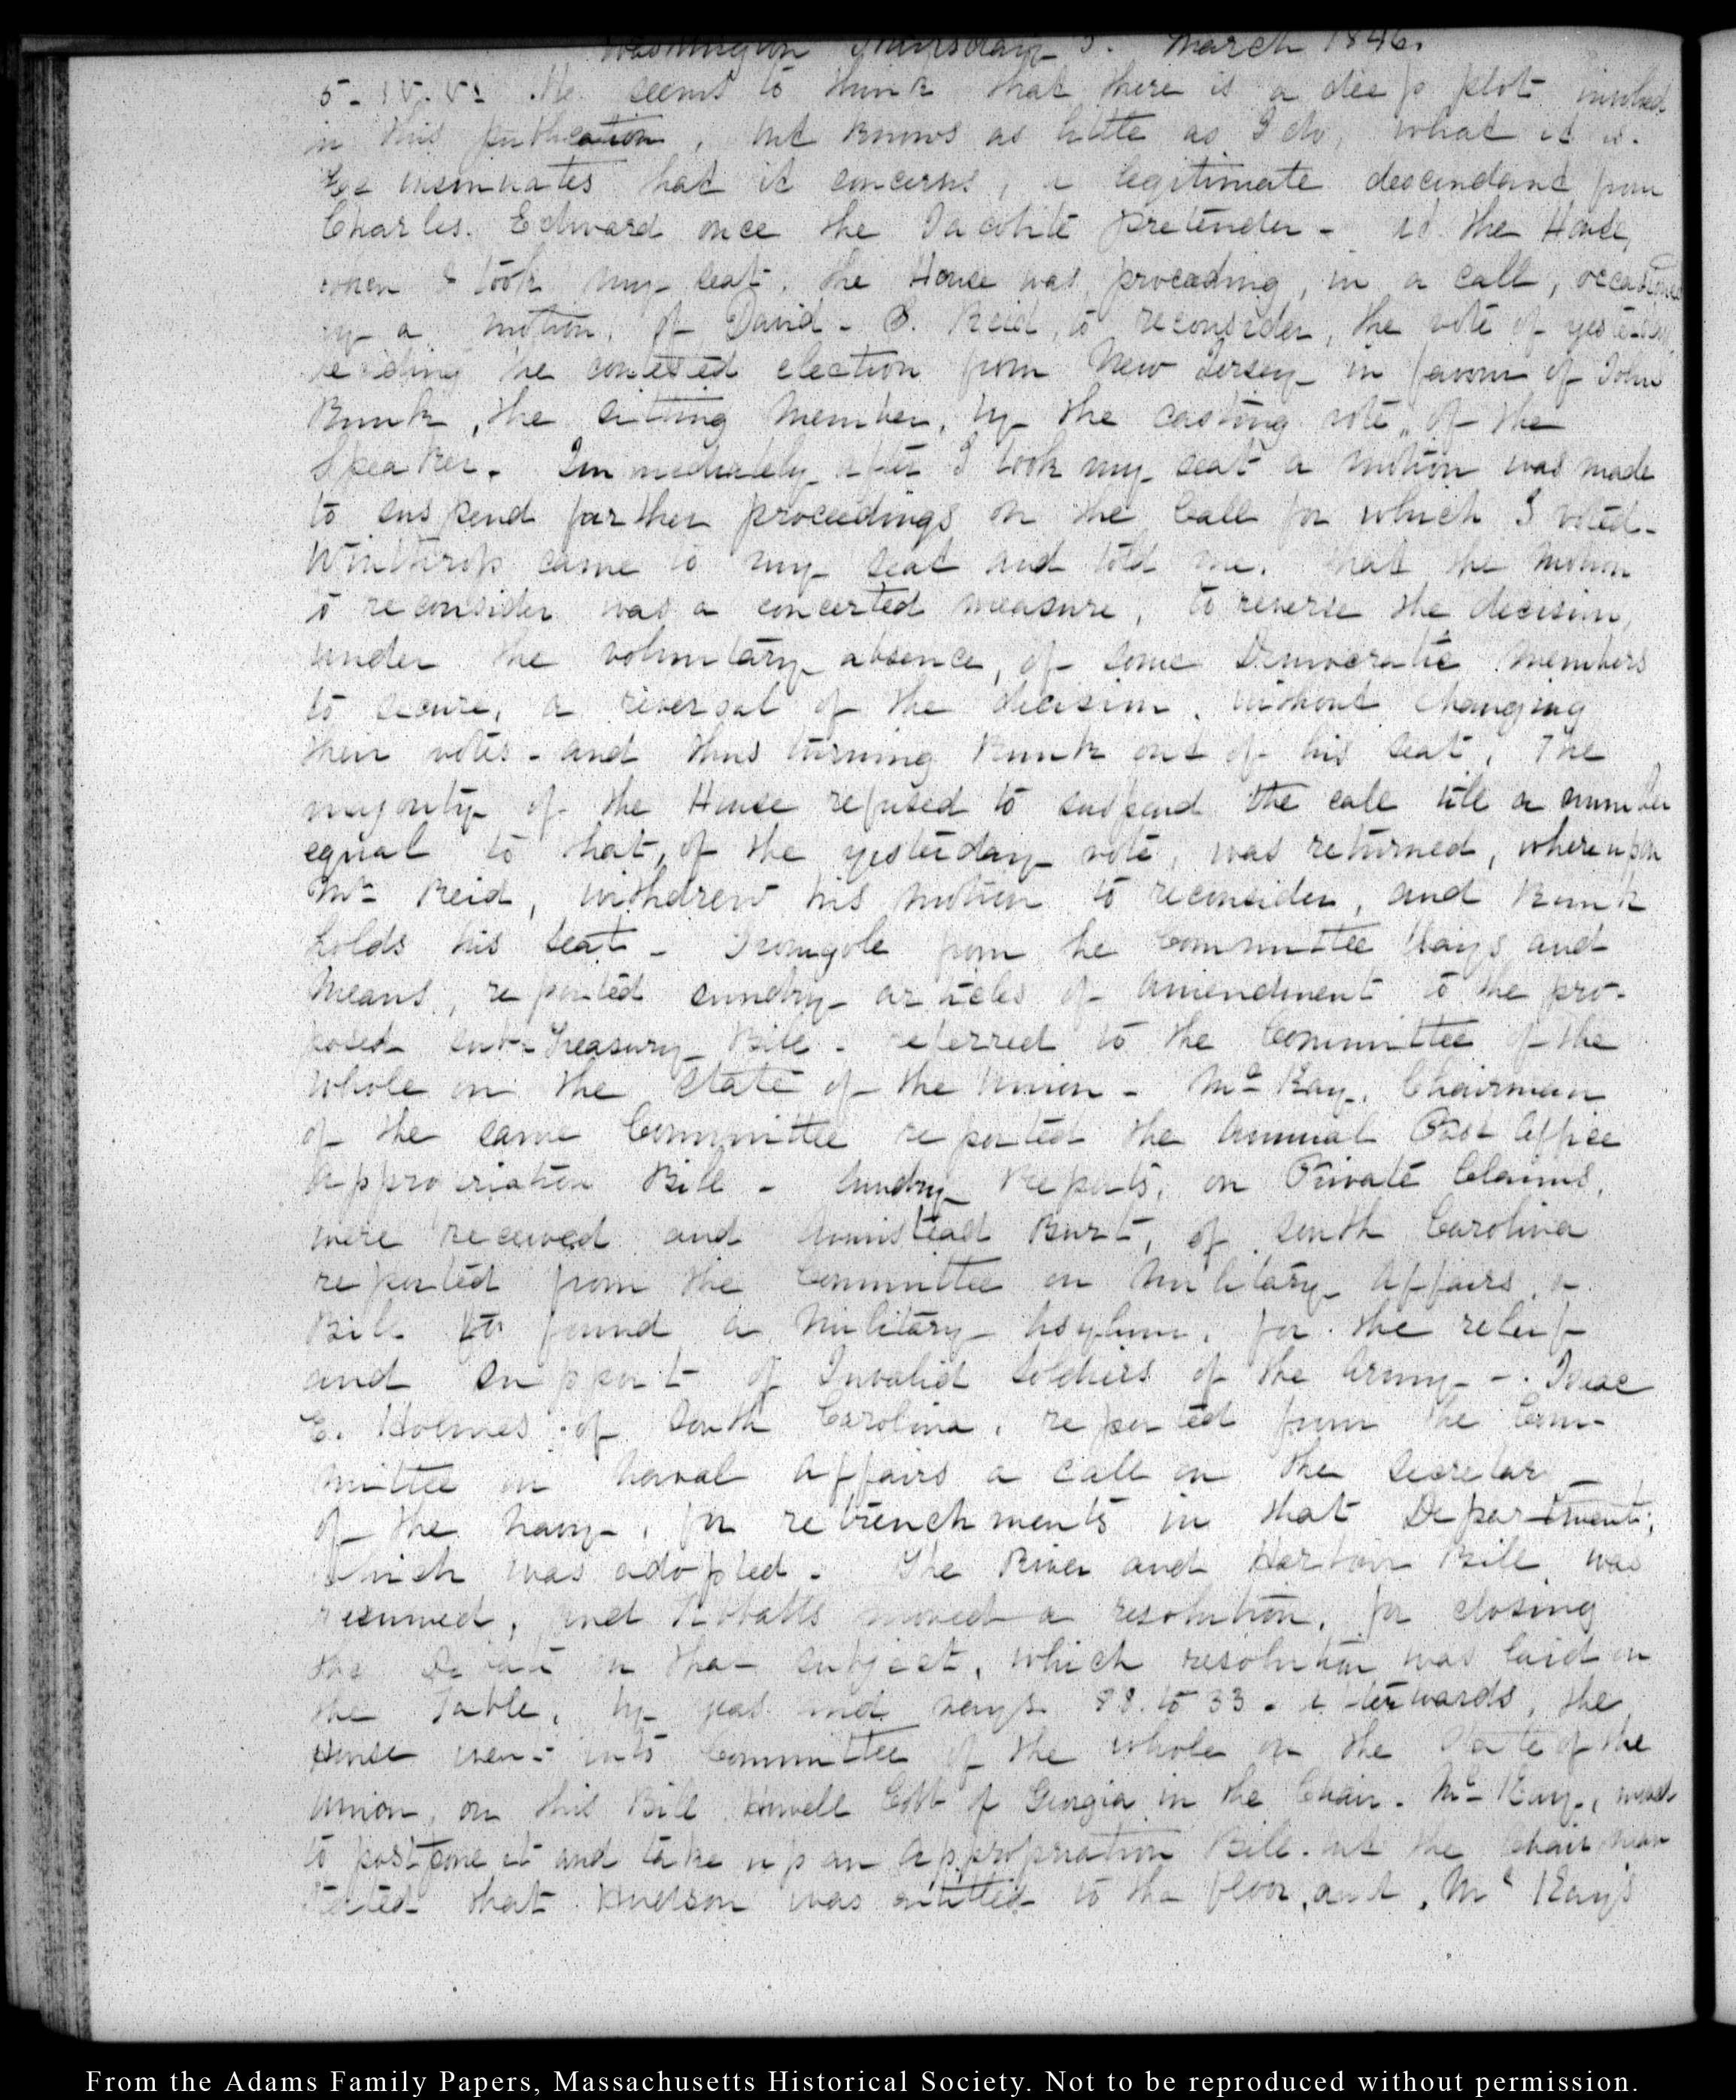 Washington Thursday 5. March 1846.
5. IV. V. He seems to think that there is a deep plot involved
in this publication, but knows as little as I do, what it is.
He insinuates that it concerns, a legitimate descendant from
Charles Edward once the Jacobite pretender - At the House,
when I took my seat, the House was proceeding, in a call, occasioned
by a motion, of David. S. Reid, to reconsider, the vote of yesterday,
deciding the contested election from New Jersey in favour of John
Runk, the sitting member, by the casting vote, of the
Speaker. Immediately after I took my seat a motion was made
to suspend further proceedings on the Call for which I voted.
Winthrop came to my seat and told me, that the motion
to reconsider was a concerted measure, to reverse the decision,
under the voluntary absence, of some Democratic members
to secure, a reversal of the decision, without changing
their votes - and thus turning Runk out of his seat. The
majority of the House refused to suspend the call till a number
equal to that, of the yesterday vote, was returned, whereupon
Mr Reid, withdrew his motion to reconsider, and Runk
holds his seat - Dromgole from the Committee Ways and
Means, reported sundry articles of amendment to the pro-
posed sub-Treasury Bill - referred to the Committee of the
whole on the state of the Union - McKay, Chairman
of the same Committee reported the annual Post Office
appropriation Bill - Sundry Reports, on Private Claims,
were received and Armistead Burt, of South Carolina
reported from the Committee on Military Affairs, a
Bill to found a Military Asylum, for the relief
and support of Invalid Soldiers of the Army - Isaac
E. Holmes of South Carolina, reported from the Com-
mittee on Naval Affairs a call on the Secretary
of the Navy, for retrenchments in that Department;
which was adopted - The River and Harbour Bill was
resumed, and moved a resolution, for closing
the Debate on that subject, which resolution was laid on
the Table, by yeas and nays 88. to 33. afterwards, the
House went into Committee of the whole on the State of the
Union, on this Bill Howell Cobb of Georgia in the Chair. McKay, moved
to postpone it and take up an Appropriation Bill. but the Chairman
stated that Hudson was entitled to the floor, and, McKay's
From the Adams Family Papers, Massachusetts Historical Society. Not to be reproduced without permission.